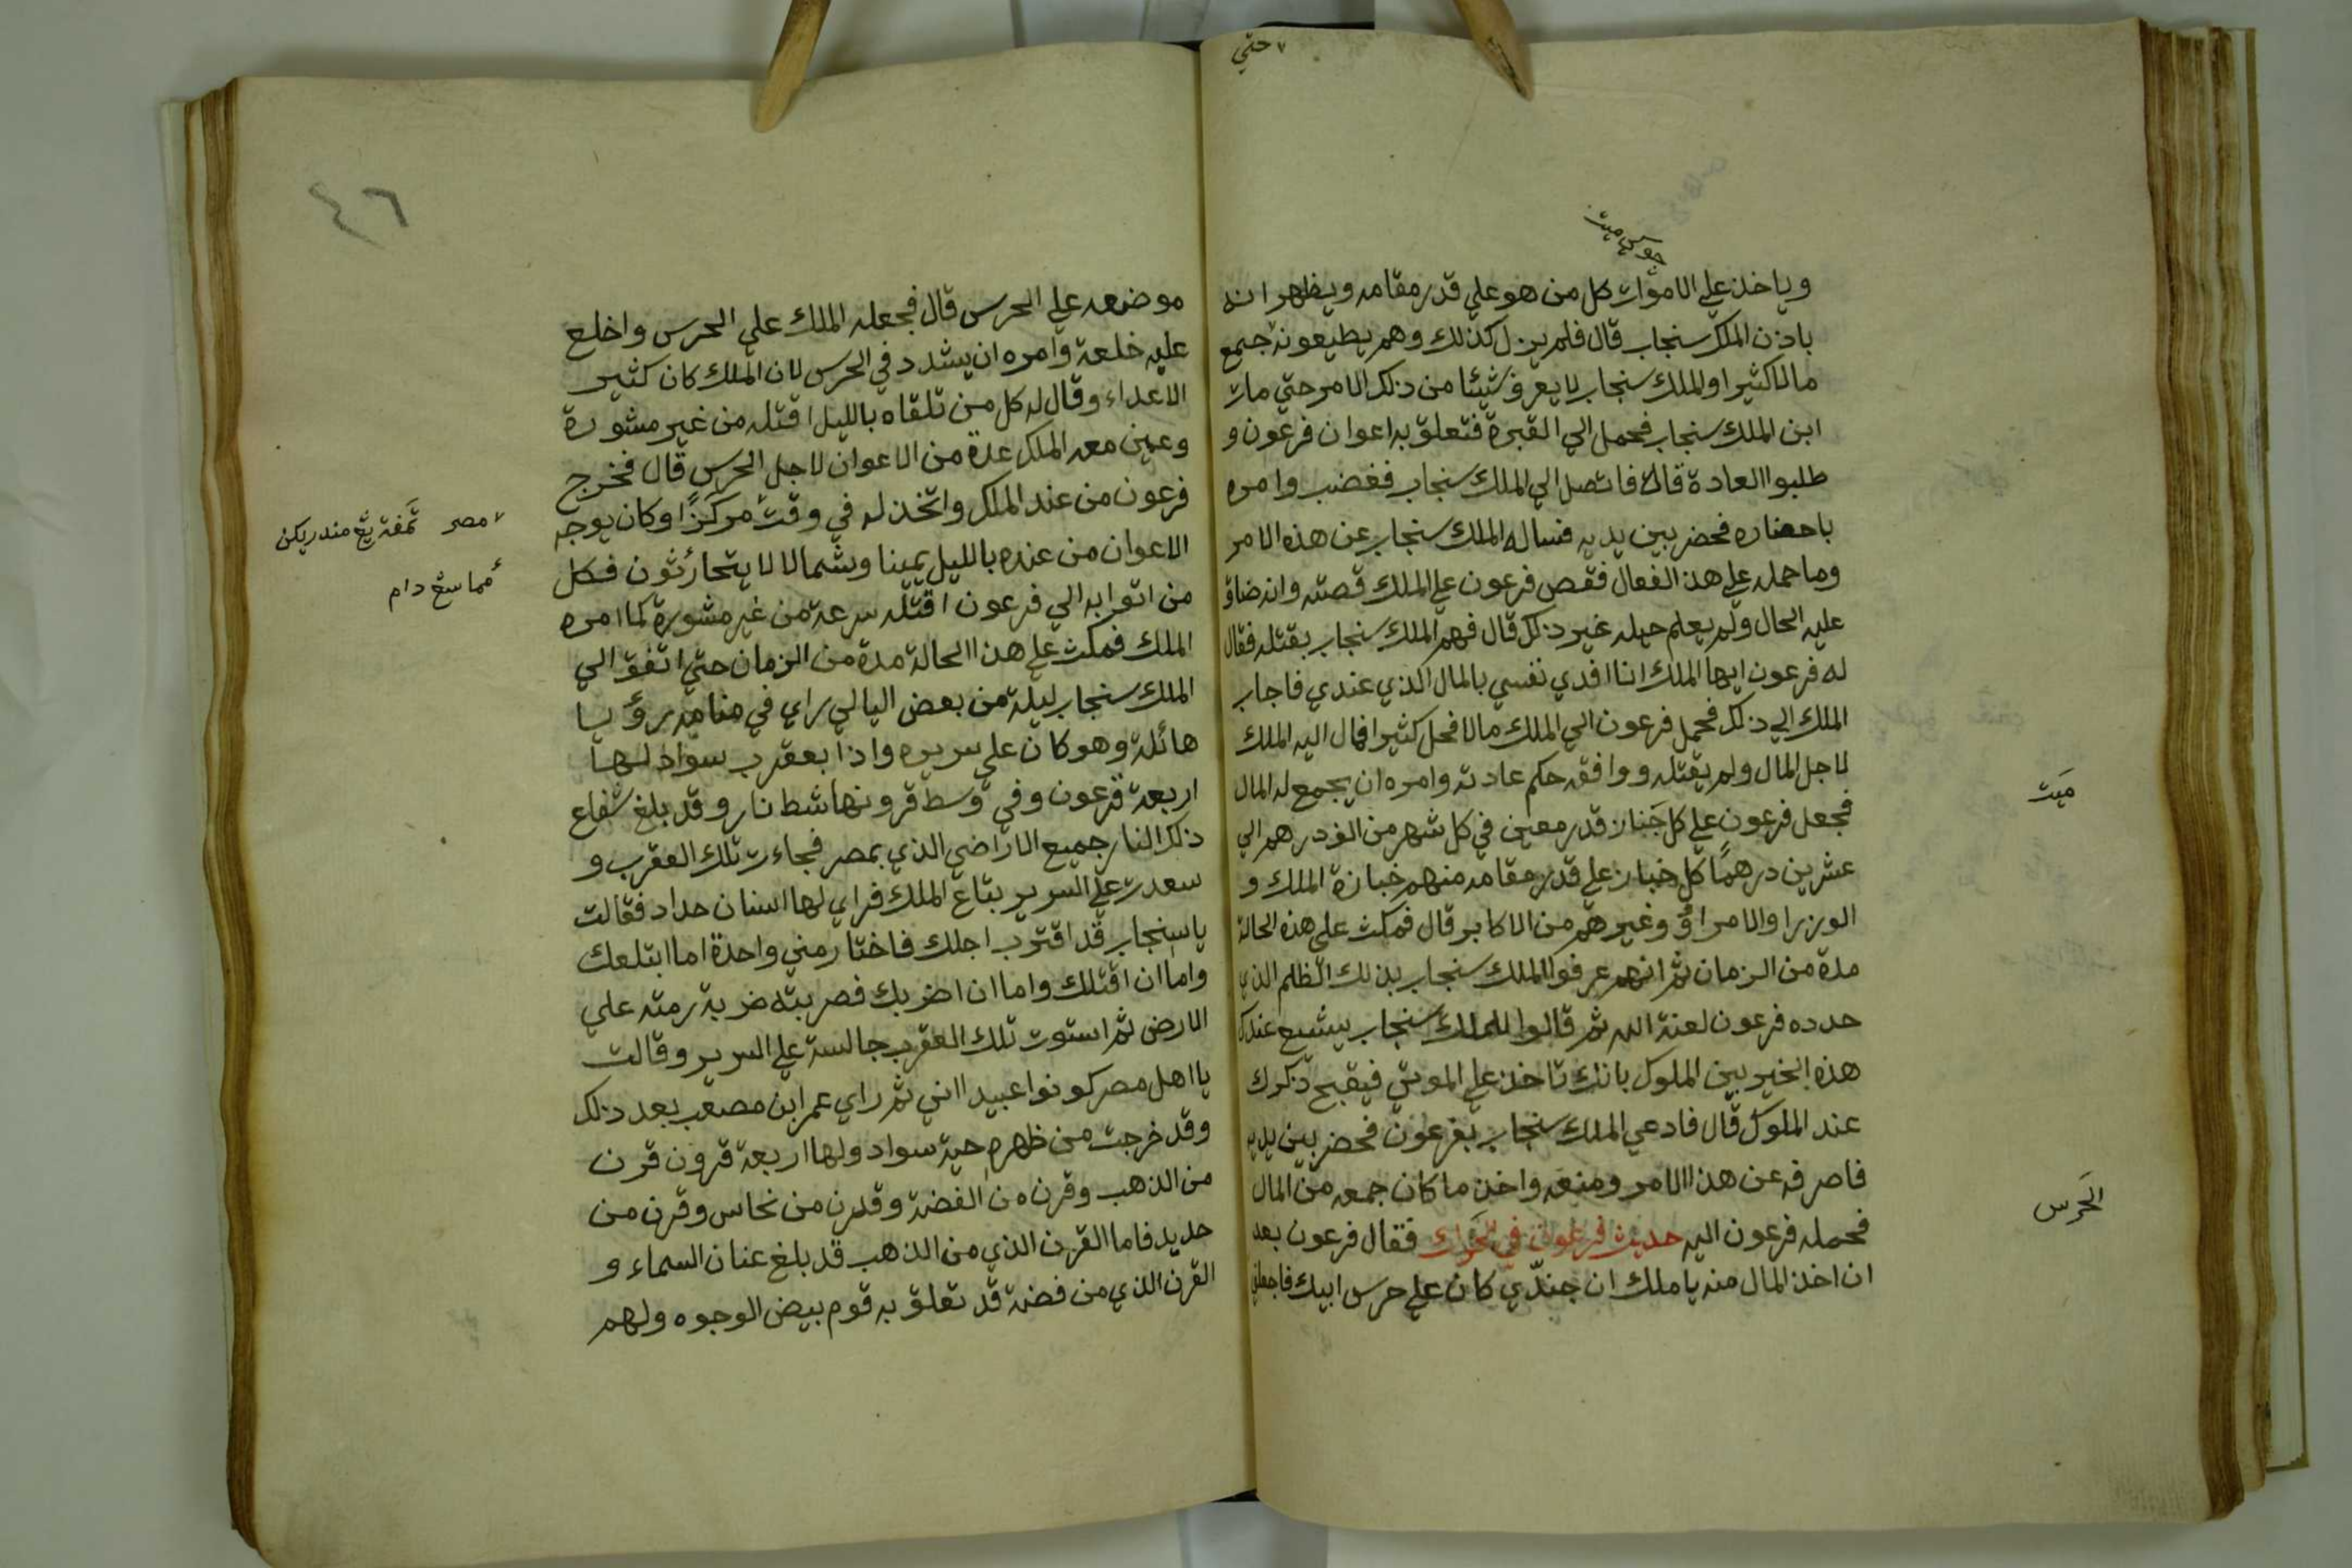 حتي
وياخذ علي الاموات كل من هو علي قدر مقامه ويظهر انه
باذن الملك سنجاب قال فلم يزل كذلك وهم يطيعونه جمع
مالا كثيرا والملك سنجاب لا يعرف شيئا من ذلك الامر حتي مات
ابن الملك سنجاب فحمل الي القبرة فتعلق به اعوان فرعون و
طلبوا العادة قال فاتصل الي الملك سنجاب فغضب وامره
باحضاره فحضر بين يديه فساله الملك سنجاب عن هذه الامر
وما حمله علي هذا الفعال فقص فرعون علي الملك قصته وانه ضاق
عليه الحال ولم يعلم حيله غير ذلك قال فهم الملك سنجاب بقتله فقال
له فرعون ايها الملك انا افدي نفسي بالمال الذي عندي فاجاب
الملك الي ذلك فحمل فرعون الي الملك مالا فحل كثيرا فمال اليه الملك
لاجل المال ولم يقتله ووافقه حكم عادته وامره ان يجمع له المال
فجعل فرعون علي كل جنازة قدر معين في كل شهر من الف درهم الي
عشرين درهمًا كل خباز علي قدر مقامه منهم خبازة الملك و
الوزرا والامراؤ وغيرهم من الاكابر قال فمكث علي هذه الحالة
مدة من الزمان ثم انهم عرفوا الملك سنجاب بذلك الظلم الذي
حدده فرعون لعنة الله ثم قالوا للملك سنجاب يشيع عندك
هذه الخير بين الملوك بانك تاخذ علي الموتي فيقبح ذكرك
عند الملوك قال فادعي الملك سنجاب بفرعون فحضر بين يديه
فاصرفه عن هذا الامر ومنعه واخذ ما كان جمعه من المال
فحمله فرعون اليه حديث فرعون في فقال فرعون بعد
ان اخذ المال منه يا ملك ان جندّي كان علي حرس ابيك فاجعلني
ميت
الحرس
٤٦
موضعه علي الحرس قال فجعله الملك علي الحرس واخلع
عليه خلعة وامره ان يشدد في الحرس لان الملك كان كثير
الاعداء وقال له كل من تلقاه بالليل اقتله من غير مشورة
وعين معه الملك عدة من الاعوان لاجل الحرس قال فخرج
فرعون من عند الملك واتخذ له في وقت مركزًا وكان يوجه
الاعوان من عنده بالليل يمينا وشمالا لا يتحارثون فكل
من اتوا به الي فرعون اقتله سرعة من غير مشورة كما امره
الملك فمكث علي هذا الحالة مدة من الزمان حتي اتفق الي
الملك سنجاب ليلة من بعض اليالي راي في منامه رؤيا
هائلة وهو كان علي سريره واذا بعقرب سواد لها
اربعة قرعون وفي وسط قرونها شط نار وقد بلغ شفاع
ذلك النار جميع الاراضي الذي بمصر فجاءت تلك العقرب و
سعدت علي السرير بتاع الملك فراي لها اسنان حداد فقالت
يا سنجاب قد اقترب اجلك فاختار مني واحدة اما ابتلعك
واما ان اقتلك واما ان اضربك فصربته ضربة رمته علي
الارض ثم استوت تلك العقرب جالسة علي السرير وقالت
يا اهل مصر كونوا عبيدا اني ثم راي عمر ابن مصعب بعد ذلك
وقد خرجت من ظهره حية سواد ولها اربعة قرون قرن
من الذهب وقرن من الفضة وقرن من نحاس وقرن من
حديد فاما القرن الذي من الذهب قد بلغ عنان السماء و
القرن الذي من فضة قد تعلق به قوم بيض الوجوه ولهم
مصر
دام